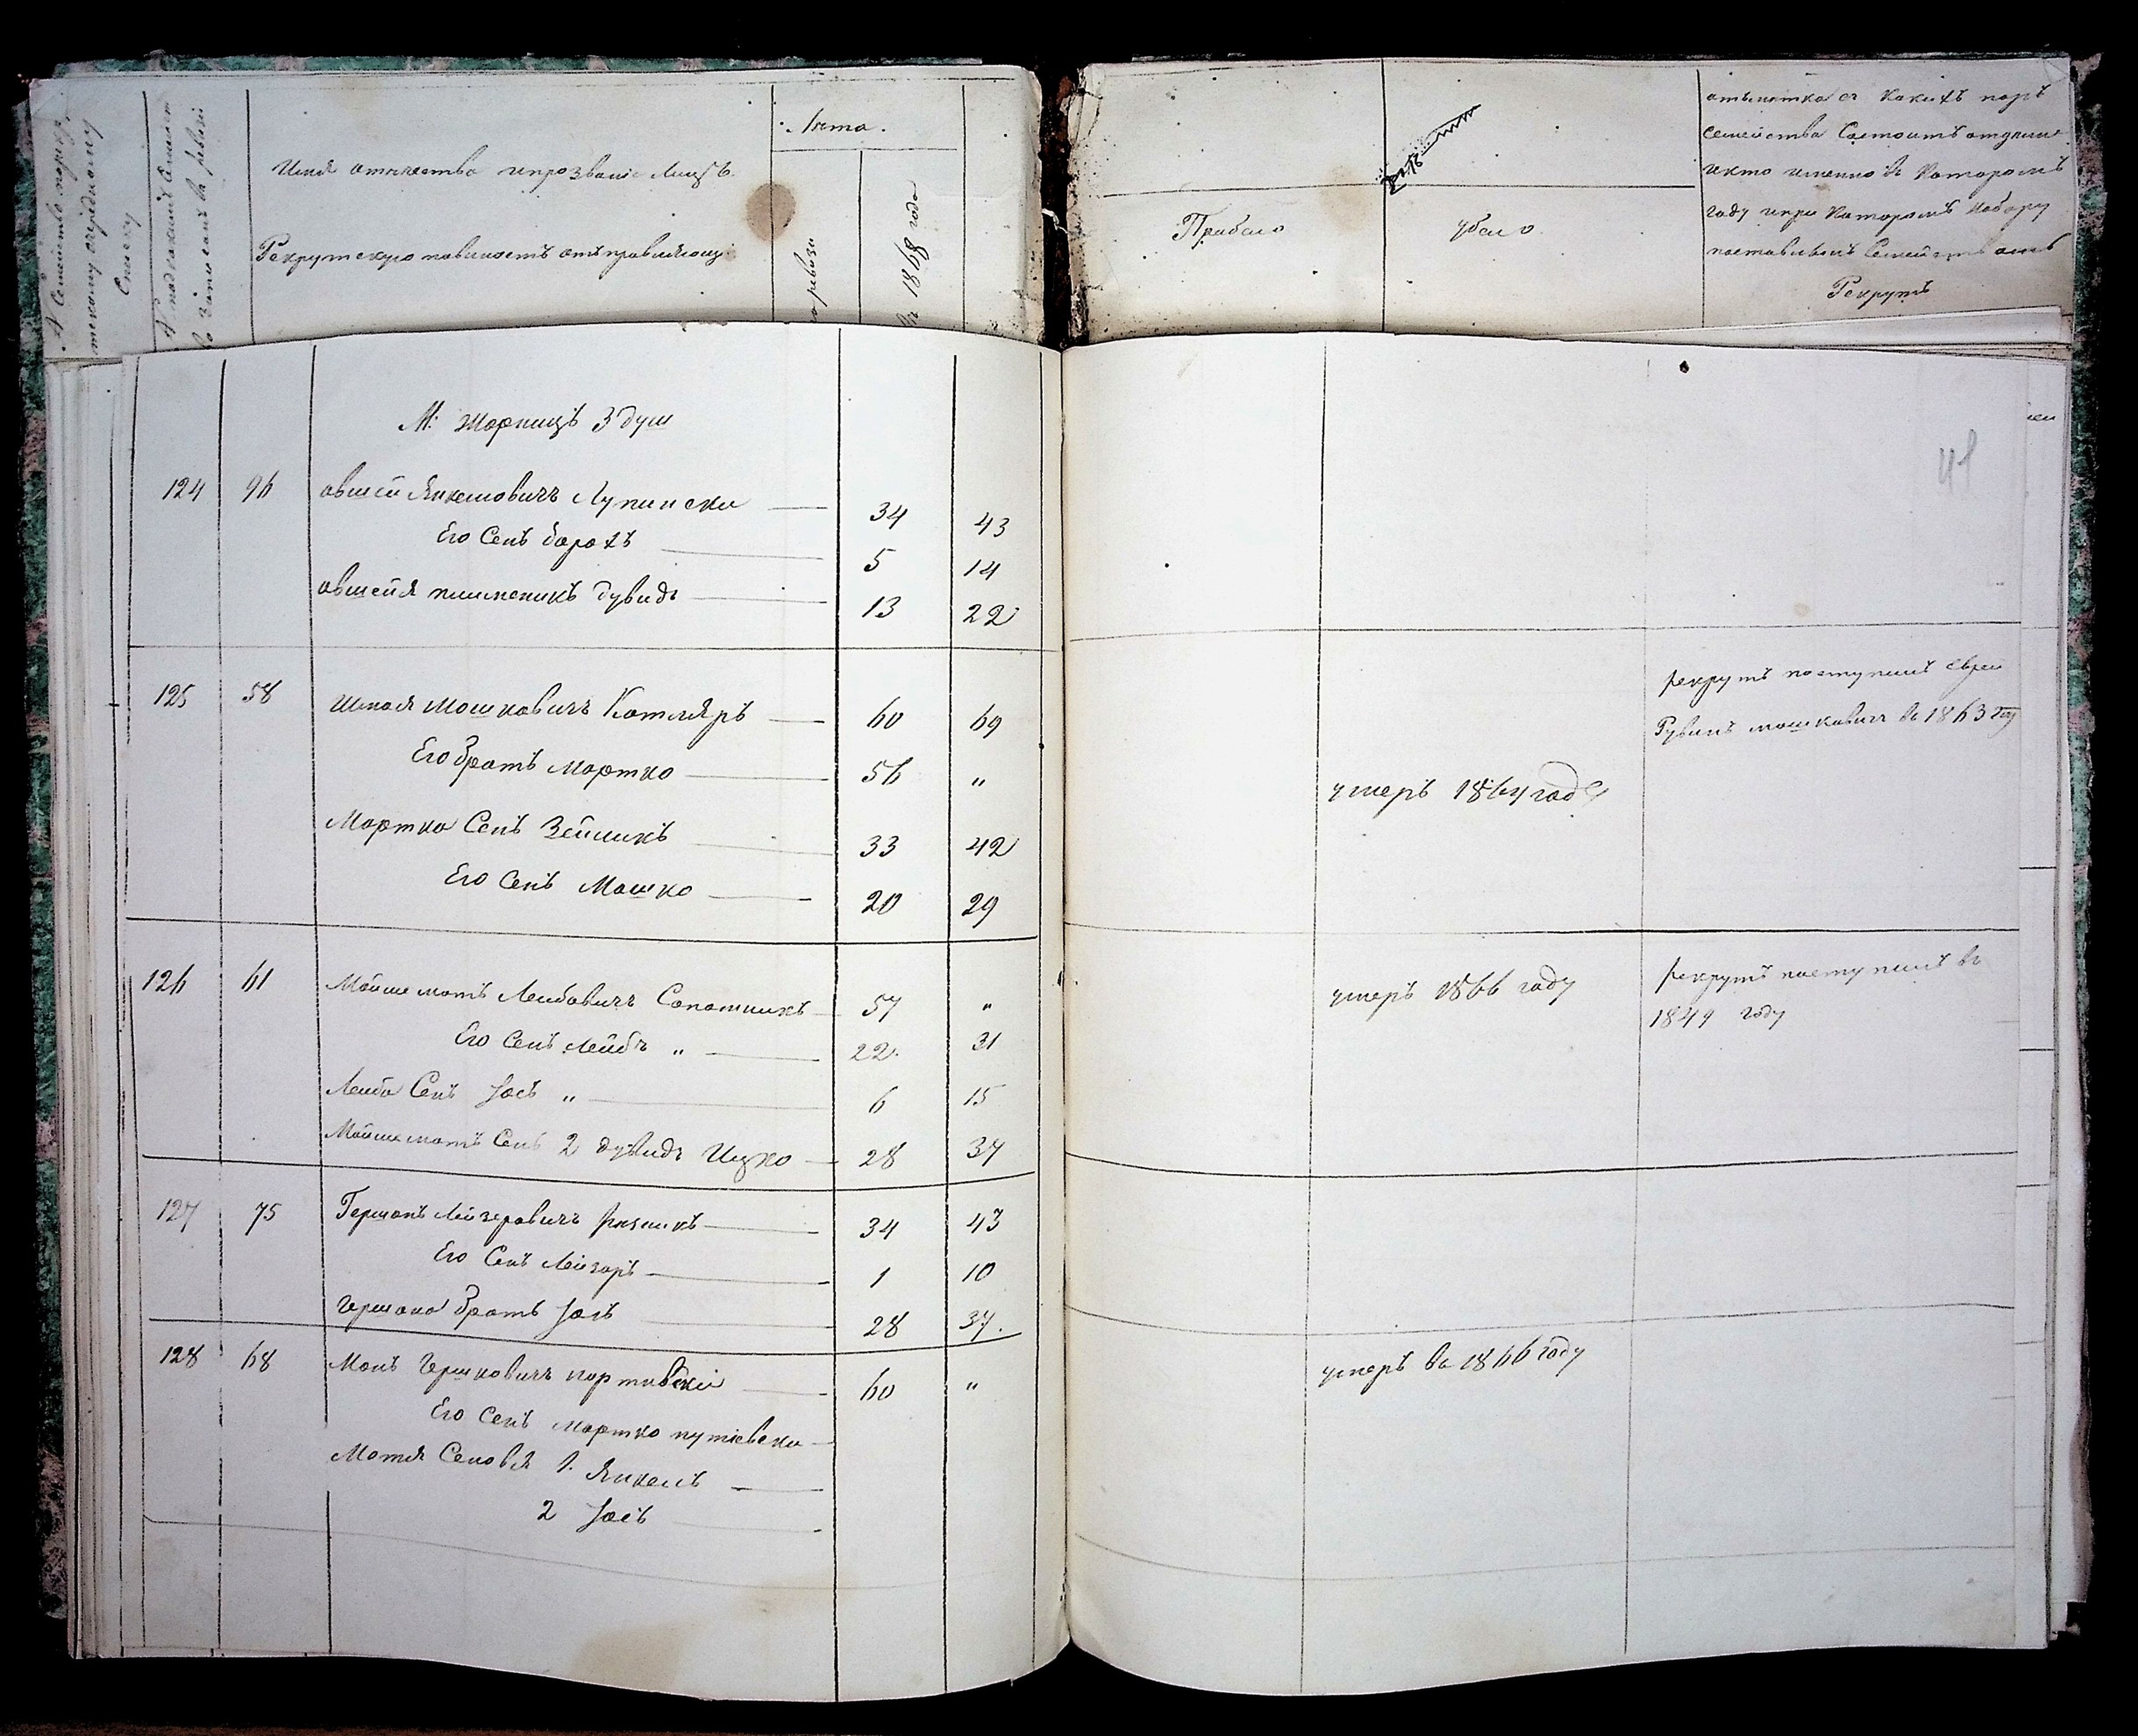 № Семействъ по рекрутскому очередному Списку
Лета.
Имя отчество и прозваніе Лицъ
Рекрутскую повиность отправляющи
по ревизи
1868 года
Прибыло
убыло
отъметка съ какихъ поръ
семейства Состоитъ
и кто именно въ Которомъ
году и при Которомъ наборе
поставленъ Семействамъ
Рекрутъ
41
М: Жорнищъ 3 душ
124 96 овшей Янкелович Лупински 34 43
Его Сенъ борохъ 5 14
овшея племеникъ дувидъ 13 22
125 58 Шмоля Мошковичъ Котляръ 60 69
рекрутъ поступилъ еврей
Рувинъ мошковичъ во 1863 году
Его братъ Мортко 56 "
умеръ 1864 года
Мортка Сенъ Зейликъ 33 42
Его Сенъ Мошко 20 29
126 61 Мойше мотъ Лейбовичъ Сапожникъ 57 "
умеръ 1866 году
рекрутъ поступилъ въ
1849 году
Его Сенъ Лейбъ " 22. 31
Лейба Сенъ Іосъ " 6 15
Мойше мотъ Сенъ 2 дувидъ Ицко 28 37
127 75 Гершонъ Лейзеровичъ Резникъ 34 43
Его Сенъ Лейзоръ 1 10
Гершона братъ Іосъ 28 37.
128 68 Мотъ Гершковичъ 60 "
умеръ во 1866 году
Его Сенъ Мортко путіевски
Мотя Сеновя 1. Янкель
2 Іосъ